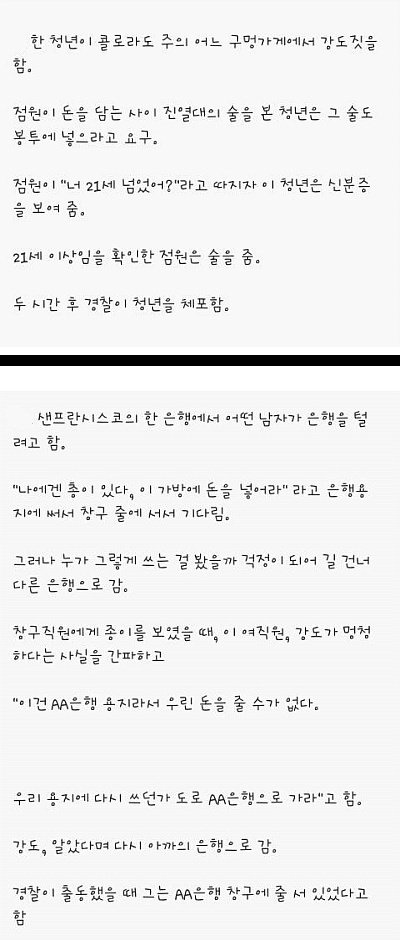 한 청년이 콜로라도 주의 어느 구멍가게에서 강도짓을
함.
점원이 돈을 담는 사이 진열대의 술을 본 청년은 그 술도
봉투에 넣으라고 요구.
점원이 "너 21세 넘었어?"라고 따지자 이 청년은 신분증
을 보여 줌.
21세 이상임을 확인한 점원은 술을 줌.
두 시간 후 경찰이 청년을 체포함.
샌프란시스코의 한 은행에서 어떤 남자가 은행을 털
려고 함.
"나에겐 총이 있다, 이 가방에 돈을 넣어라" 라고 은행용
지에 써서 창구 줄에 서서 기다림.
그러나 누가 그렇게 쓰는 걸 봤을까 걱정이 되어 길 건너
다른 은행으로 감.
창구직원에게 종이를 보였을 때, 이 여직원, 강도가 멍청
하다는 사실을 간파하고
"이건 AA은행 용지라서 우린 돈을 줄 수가 없다.
우리 용지에 다시 쓰던가 도로 AA은행으로 가라"고 함.
강도, 알았다며 다시 아까의 은행으로 감.
경찰이 출동했을 때 그는 AA은행 창구에 줄 서 있었다고
함